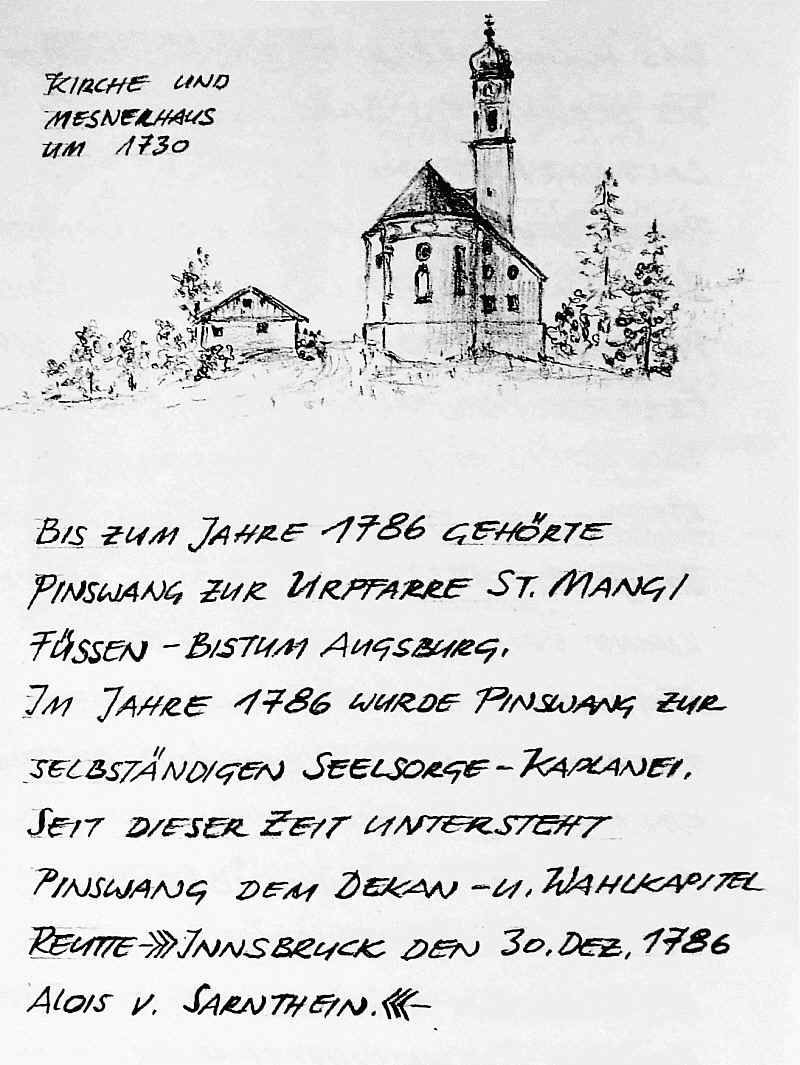 KIRCHE UND
MESNERHAUS
UM 1730
BIS ZUM JAHRE 1786 GEHÖRTE
PINSWANG ZUR URPFARRE ST. MANG/
FÜSSEN - BISTUM AUGSBURG.
IM JAHRE 1786 WURDE PINSWANG ZUR
SELBSTÄNDIGEN SEELSORGE - KAPLANEI.
SEIT DIESER ZEIT UNTERSTEHT
PINSWANG DEM DEKAN - U. WAHLKAPITEL
REUTTE->>> INNSBRUCK DEN 30. DEZ. 1786
ALOIS V. SARNTHEIN.<<<-